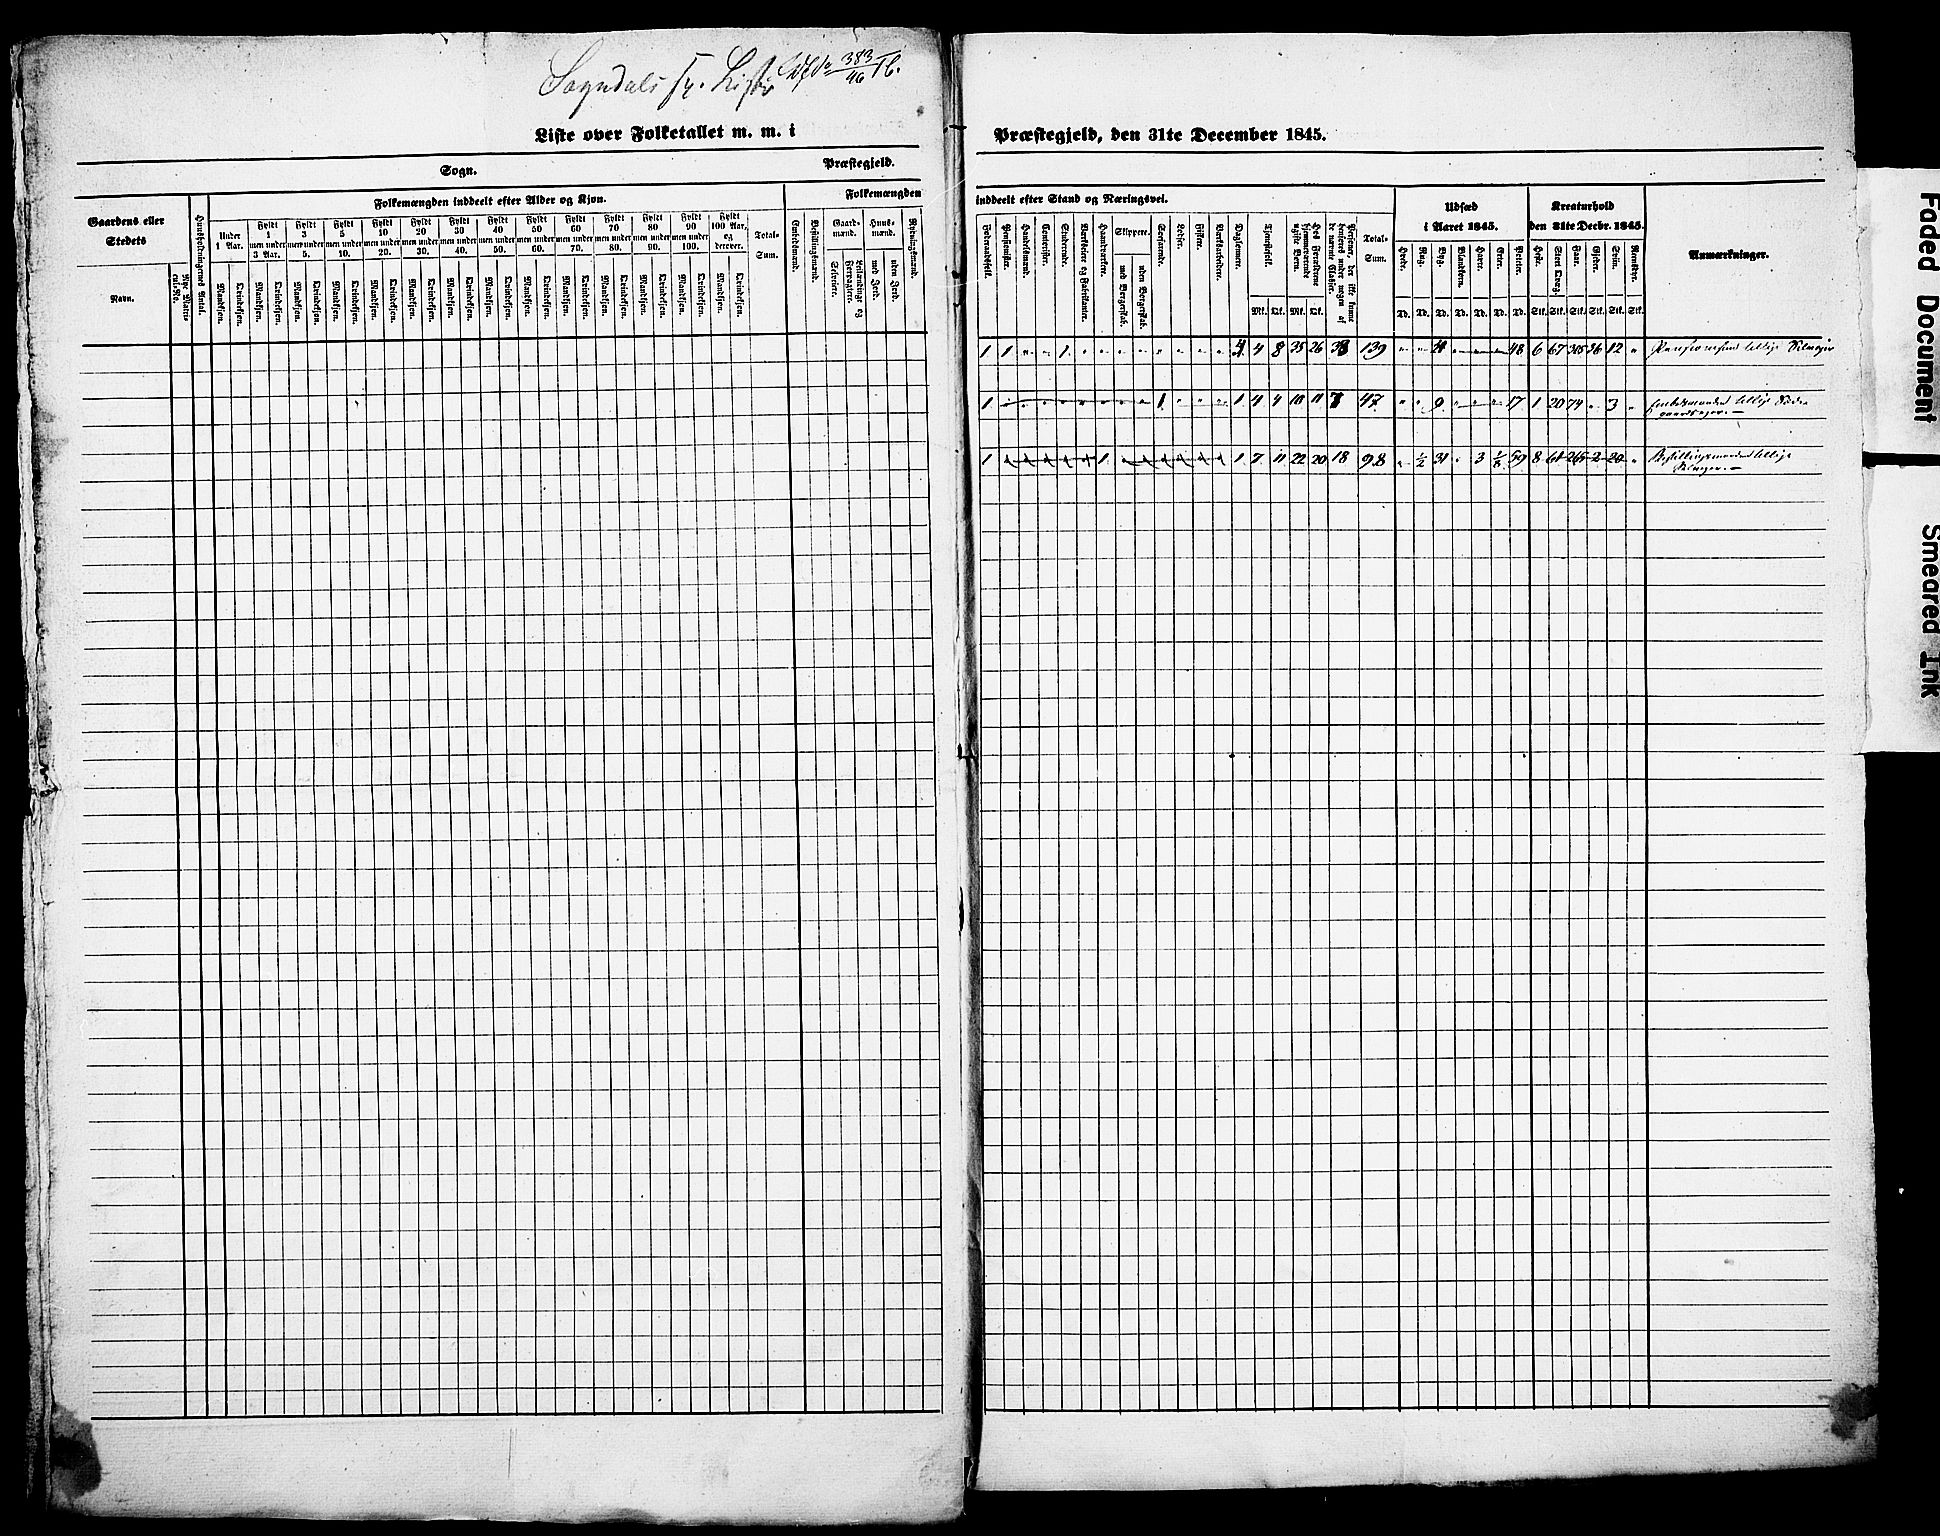 Sogndals Pr.
383
46
Liste over Folketallet m. m. i
Sogn.
Præstegjeld.
Gaardens eller
Stedets
Navn.
Nye Matricul-No.
Huusholdningernes Antal.
Folkemængden inddeelt efter Alder og Kjøn.
Under 1 Aar.
Fyldt 1 men under 3 Aar.
Fyldt 3 men under 5.
Fyldt 5 men under 10.
Fyldt 10 men under 20.
Fyldt 20 men under 30.
Fyldt 30 men under 40.
Fyldt 40 men under 50.
Fyldt 50 men under 60.
Fyldt 60 men under 70.
Fyldt 70 men under 80.
Fyldt 80 men under 90.
Fyldt 90 men under 100.
Fyldt 100 Aar, og derover.
Mandkjøn. Qvindekjøn. Mandkjøn. Qvindekjøn. Mandkjøn. Qvindekjøn. Mandkjøn. Qvindekjøn. Mandkjøn. Qvindekjøn. Mandkjøn. Qvindekjøn. Mandkjøn. Qvindekjøn. Mandkjøn. Qvindekjøn. Mandkjøn. Qvindekjøn. Mandkjøn. Qvindekjøn. Mandkjøn. Qvindekjøn. Mandkjøn. Qvindekjøn. Mandkjøn. Qvindekjøn. Mandkjøn. Qvindekjøn.
Total-Sum.
Folkemængden
Embedsmænd.
Bestillingsmænd.
Gaardmænd.
Selveiere.
Leilændinge og Forpagtere.
Huusmænd.
med Jord.
uden Jord.
Rydningsmænd.
Præstegjeld, den 31te December 1845.
inddeelt efter Stand og Næringsvei.
Føderaadsfolk.
Pensionister.
Handelsmænd.
Contorister.
Studerende.
Værkseiere og Fabrikanter.
Haandværkere.
Skippere.
med Borgerskab.
uden Borgerskab.
Søefarende.
Lodser.
Fiskere.
Værksarbeidere.
Daglønnere.
Tjenestefolk.
Mk. Qk.
Hos Forældrene hjemmeværende ugifte Børn.
Mk. Qk.
Personer, der ikke kunne henføres under nogen af de nævnte Classer.
Total-Sum.
Udsæd
i Aaret 1845.
Hvede. Rug. Byg. Blandkorn. Havre. Erter. Poteter.
Td. Td. Td. Td. Td. Td. Td.
Kreaturhold
den 31te Decbr. 1845.
Heste. Stort Qvæg. Faar. Gjeder. Sviin. Rensdyr.
Stk. Stk. Stk. Stk. Stk. Stk.
Anmærkninger.
1 1 " " 1 " " " " " " " " 4 4 8 35 26 139 " " " 48 6 67 12 "
1 1 " " " 1 4 4 10 11 7 47 " " 9 " 17 1 20 74 " 3 "
1 1 1 7 11 22 20 18 98 " 1/2 31 " 3 1/8 59 8 2 20 "
Faded Document
Smeared Ink